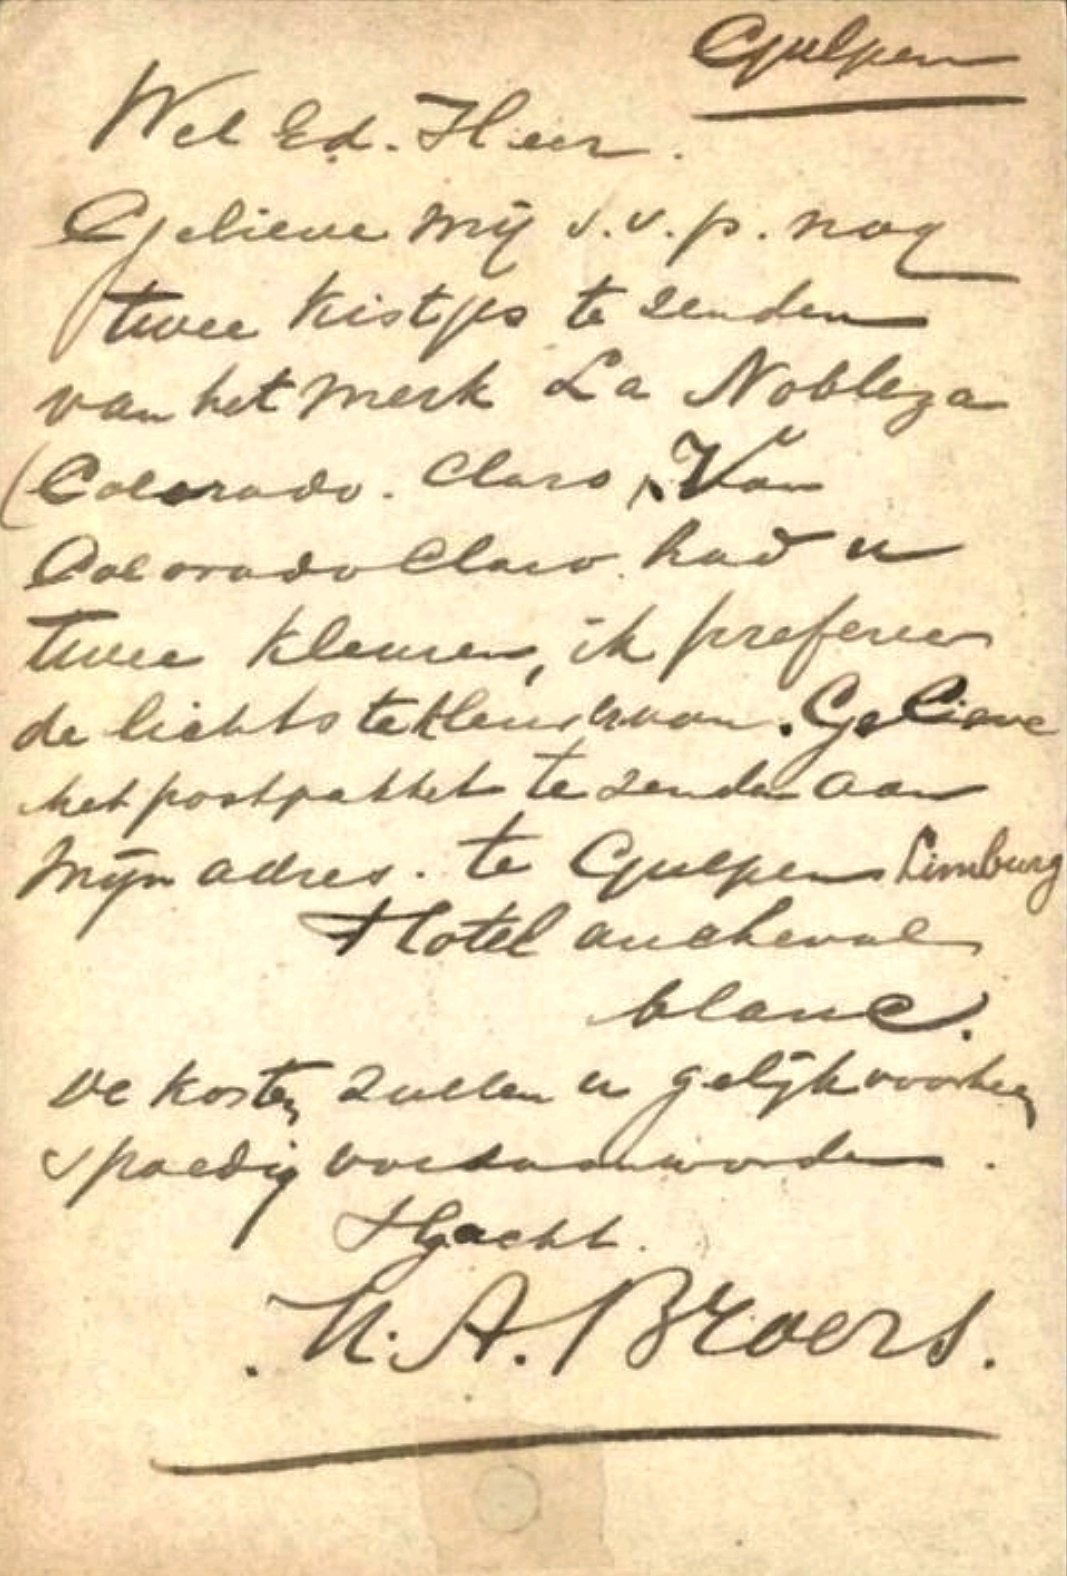 Gulpen
Wel Ed. Heer.
Gelieve mij s.v.p. nog
twee kistjes te zenden
van het merk La Nobleza
(Colorado. Claro). Van
Colorado Claro. had u
twee kleuren, ik prefereer
de lichtste kleur hiervan. Gelieve
het postpakket te zenden aan
mijn adres. te Gulpen Limburg
Hotel au cheval
blanc.
De kosten zullen u gelijk voorheen
spoedig voldaan worden.
HGacht.
A. Broers.